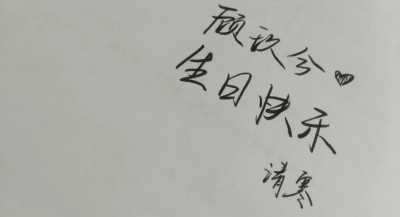 顾玖兮♥
生日快乐
清寒